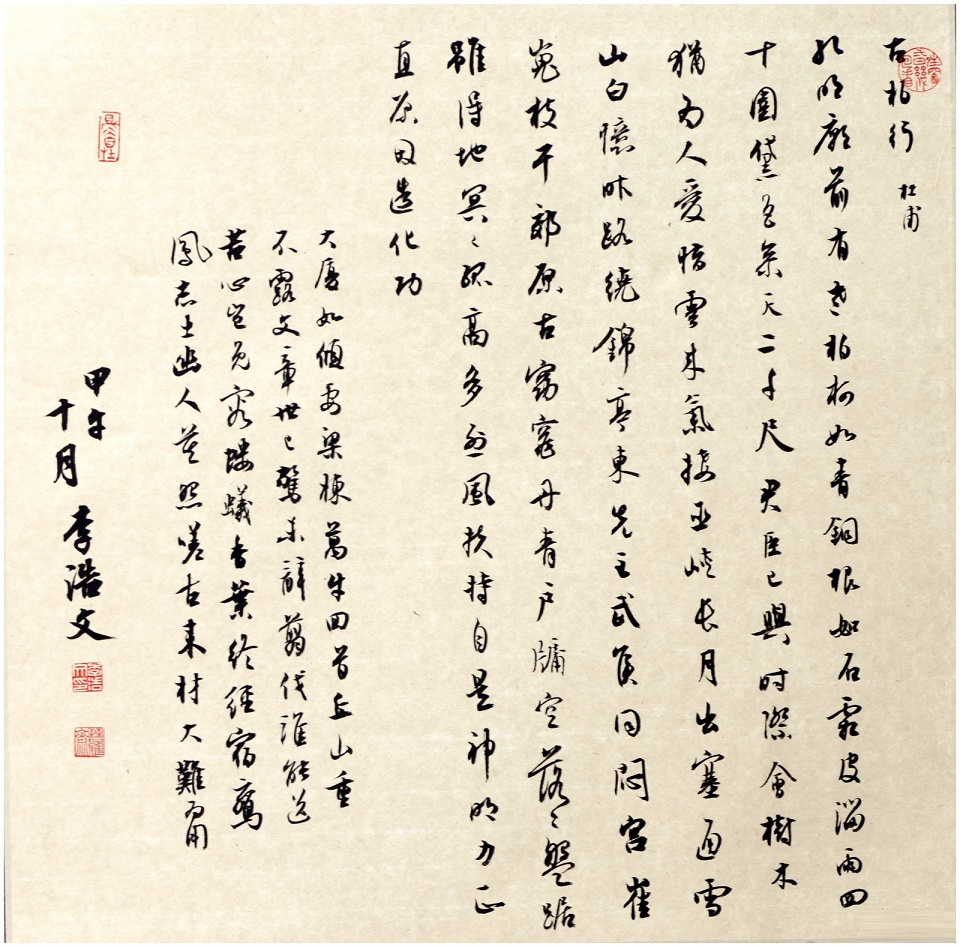 古柏行 杜甫
孔明廟前有老柏柯如青銅根如石霜皮溜雨四
十圍黛色參天二千尺君臣已與时際會樹木
猶为人愛惜雲來氣接巫峽長月出寒通雪
山白憶昨路繞錦亭東先主武侯同閟宮崔
嵬枝干郊原古窈窕丹青戶牖空落々盤踞
雖得地冥々孤高多烈風扶持自是神明力正
直原因造化功
大厦如傾要梁棟萬牛回首丘山重
不露文章世已驚未辭翦伐誰能送
苦心豈免容螻蟻香葉終經宿鸞
鳳志士幽人莫怨嗟古來材大難为用
甲午
十月
李浩文